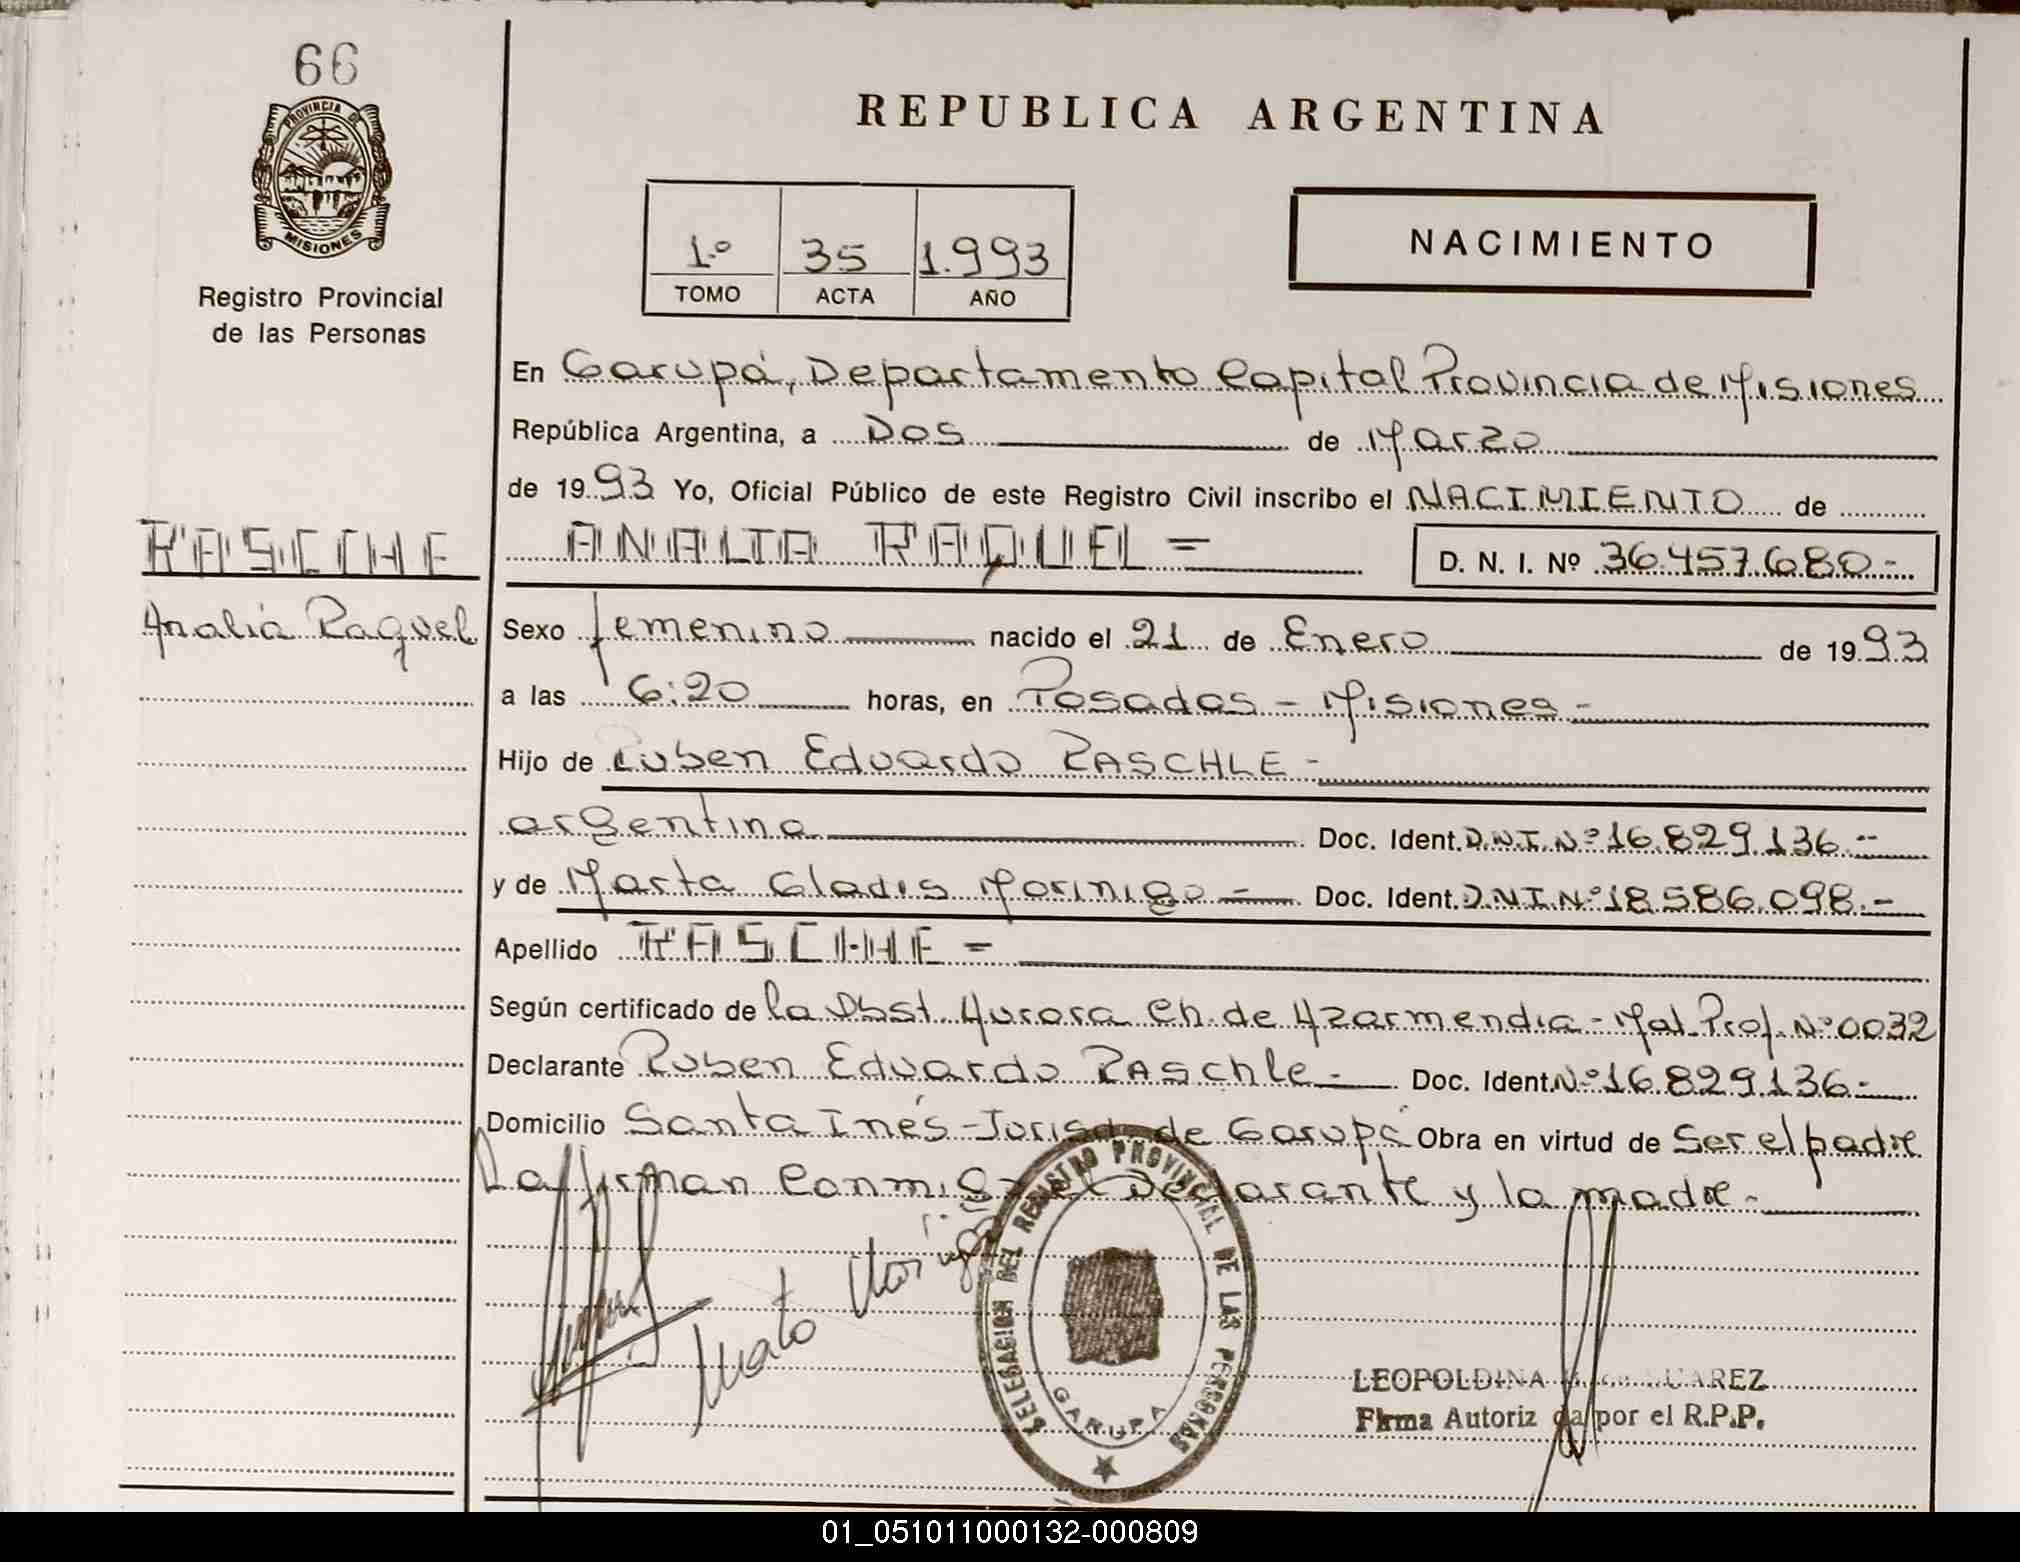 66
PROVINCIA DE
MISIONES
Registro Provincial
de las Personas
REPUBLICA ARGENTINA
1.º 35 1.993
TOMO ACTA AÑO
NACIMIENTO
En Garupá, Departamento Capital Provincia de Misiones
República Argentina, a Dos de Marzo
de 1993 Yo, Oficial Público de este Registro Civil inscribo el NACIMIENTO de
RASCCHE
ANALIA RAQUEL =
D. N. I. Nº 36.457.680.-
Analia Raquel
Sexo femenino nacido el 21 de Enero de 1993
a las 6:20 horas, en Posadas - Misiones -
Hijo de Ruben Eduardo RASCHLE -
argentina Doc. Ident. D.N.I. Nº 16.829.136.--
y de Marta Gladis Morinigo - Doc. Ident. D.N.I. Nº 18.586.098.-
Apellido RASCHE =
Según certificado de la Obst. Aurora Ch. de Azarmendia - Mat. Prof. Nº 0032
Declarante Ruben Eduardo RASchle - Doc. Ident. Nº 16.829.136-
Domicilio Santa Inés - Jurisd. de Garupá Obra en virtud de Ser el padre
La firman Conmigo el Declarante y la madre -
DELEGACION DEL REGISTRO PROVINCIAL DE LAS PERSONAS
GARUPA
LEOPOLDINA SUAREZ
Firma Autorizada por el R.P.P.
01_051011000132-000809